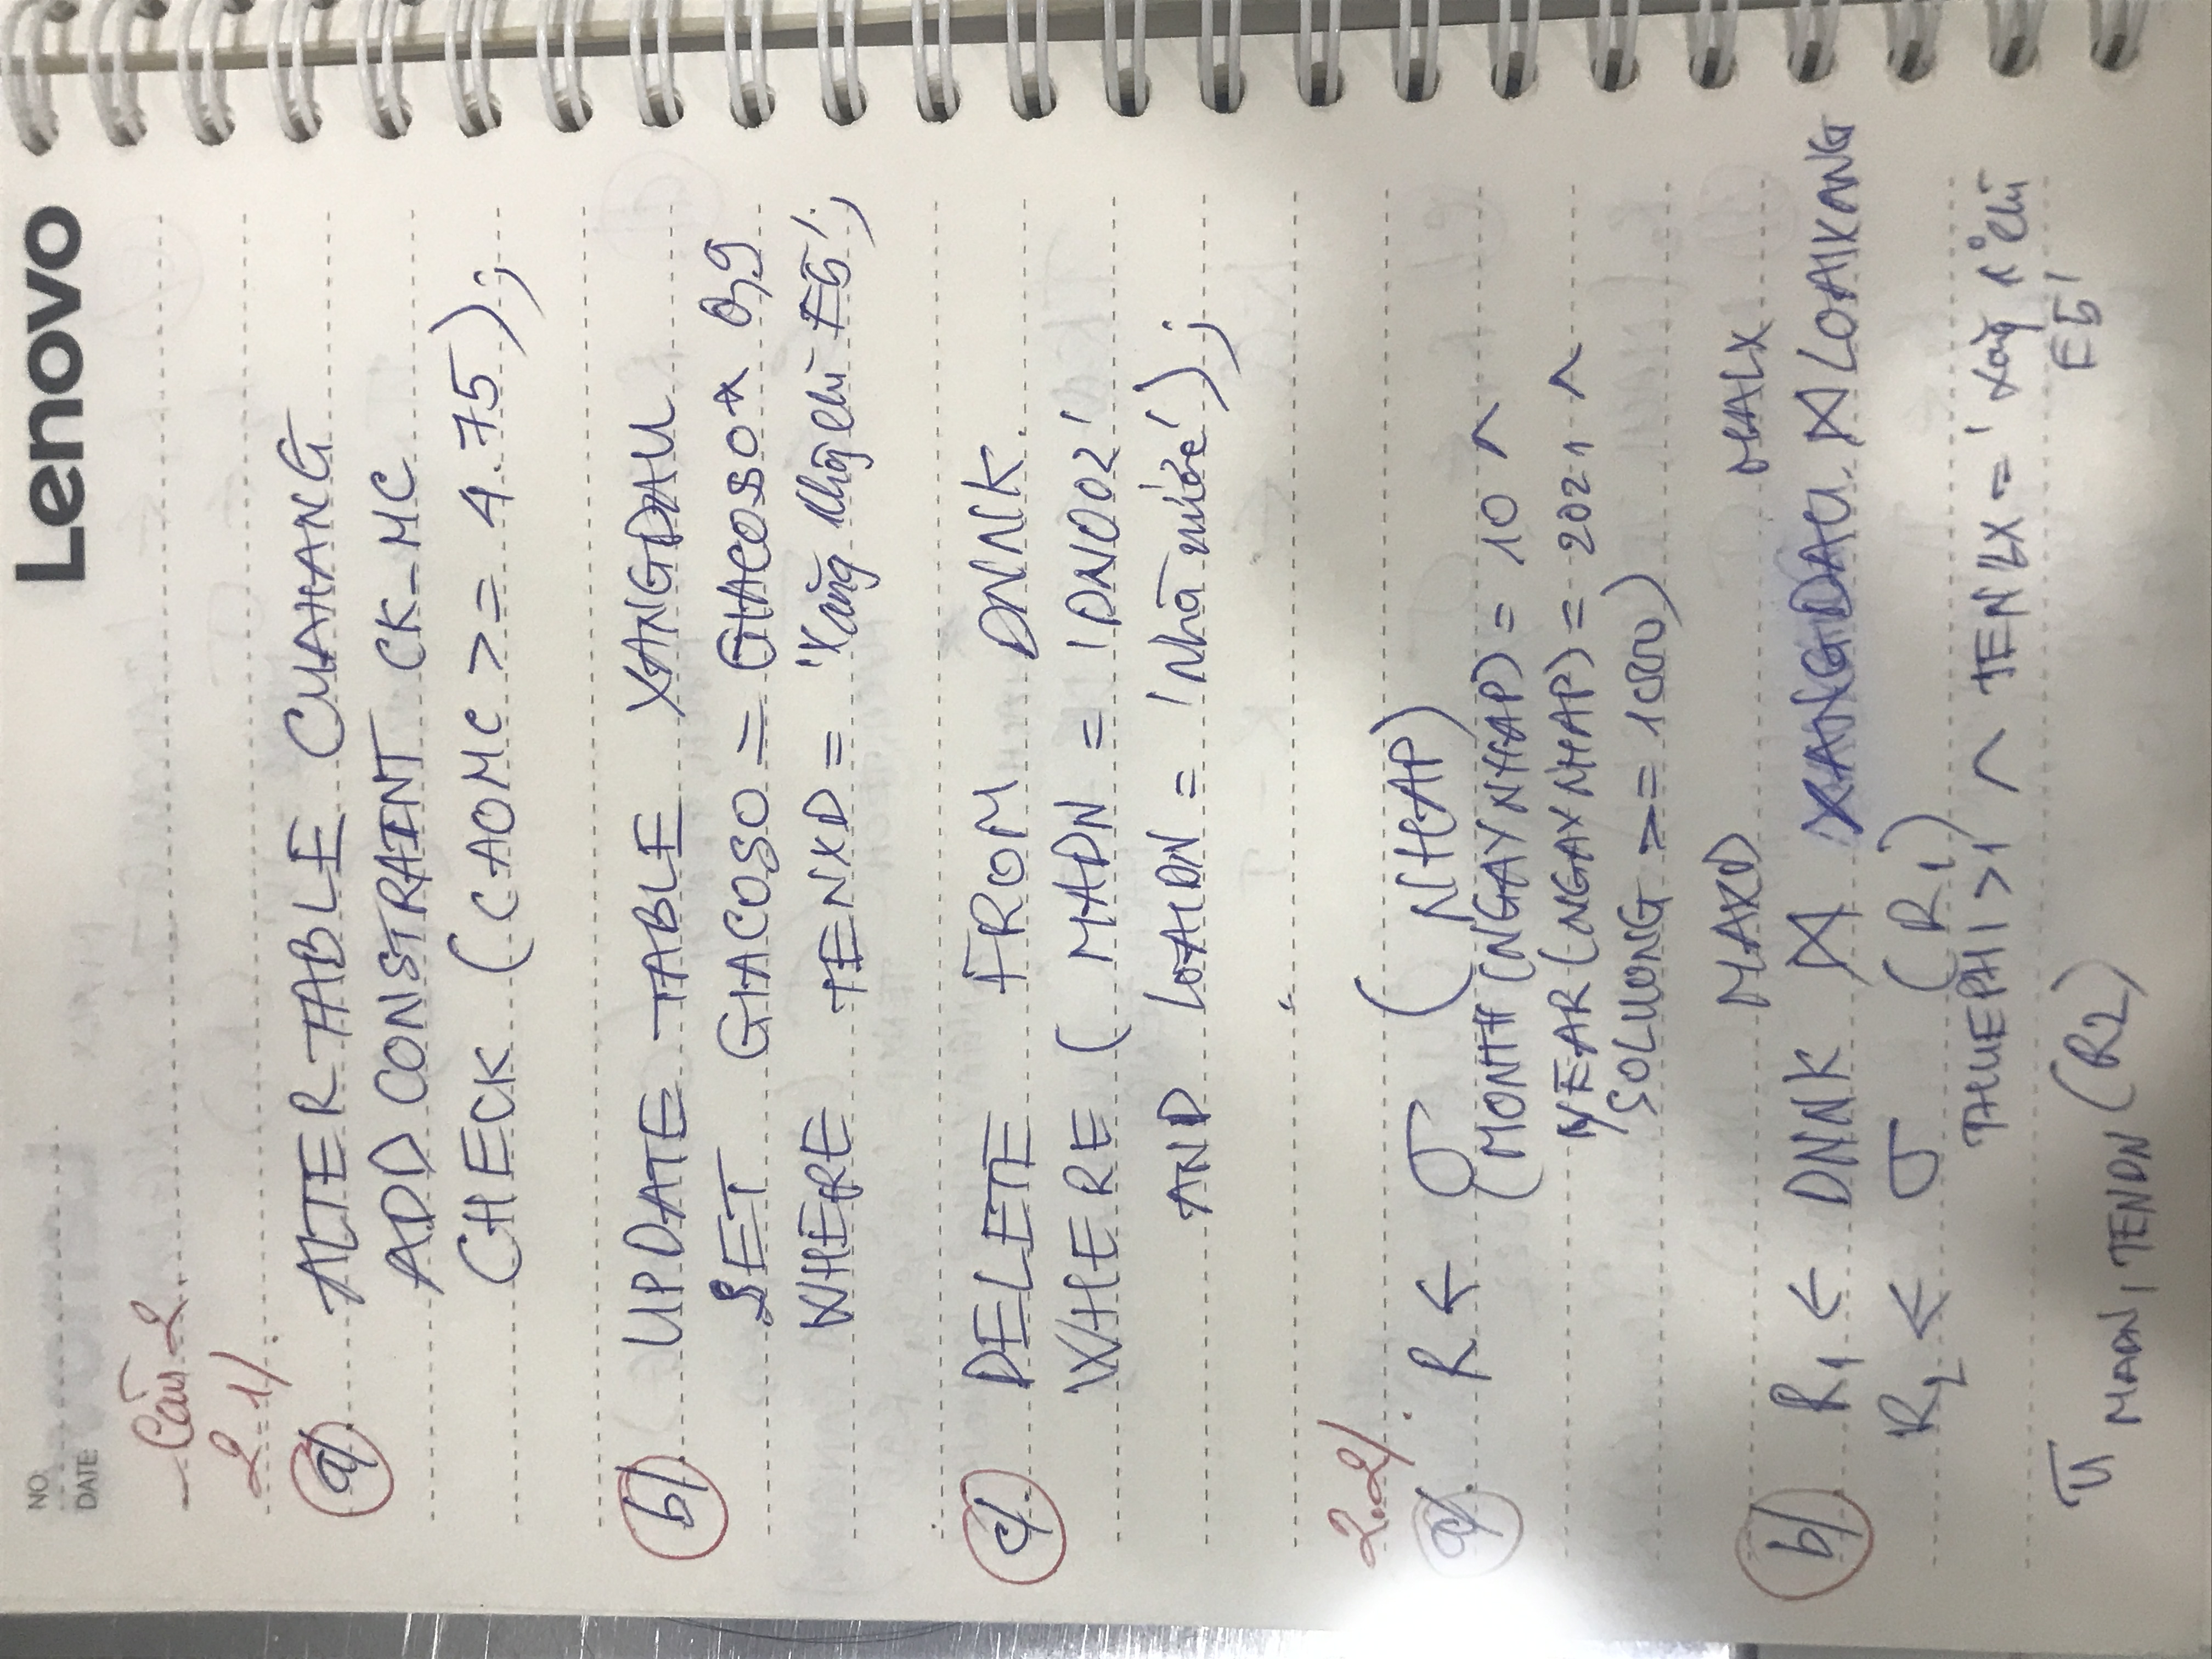 NO:
DATE:
Lenovo
Câu 2.
2.1/.
a/. ALTER TABLE CUAHANG
ADD CONSTRAINT CK_MC
CHECK (CAOMC >= 4.75);
b/. UPDATE TABLE XANGDAU
SET GIACOSO = GIACOSO * 0,9
WHERE TENXD = 'Xăng không chì E5';
c/. DELETE FROM DNNK.
WHERE ( MADN = 'DN002'
AND LOAIDN = 'Nhà nước');
2.2/.
a/. R ← σ (NHAP)
(MONTH (NGAYNHAP) = 10 ∧
YEAR (NGAYNHAP) = 2021 ∧
SOLUONG >= 1000)
MAXD MALX
b/. R1 ← DNNK ⋈ XANGDAU ⋈ LOAIXANG
R2 ← σ (R1)
THUEPHI > 1 ∧ TENLX = 'xăng k° chì
E5'
π MADN, TENDN (R2)